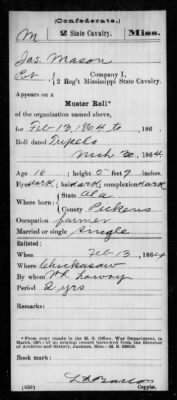 (Confederate.)
M 2 State Cavalry. Miss.
Jas. Mason
Co I, Company I,
2 Reg't Mississippi State Cavalry.
Appears on a
Muster Roll*
of the organization named above,
for Feb 13, 1864 to , 186 .
Roll dated Tupelo
Mch 30, 1864
Age 16 height 5 feet 9 inches.
Eyes dark, hair dark, complexion dark
Where born: State Ala
County Pickens
Occupation farmer
Married or single single
Enlisted:
When Feb 13, 1864
Where Chickasaw
By whom
Period 2 yrs
Remarks:
*From copy made in the M. S. Office, War Department, in
March, 1907, of an original record borrowed from the Director
of Archives and History, Jackson, Miss.
Book mark:
(650) Copyist.